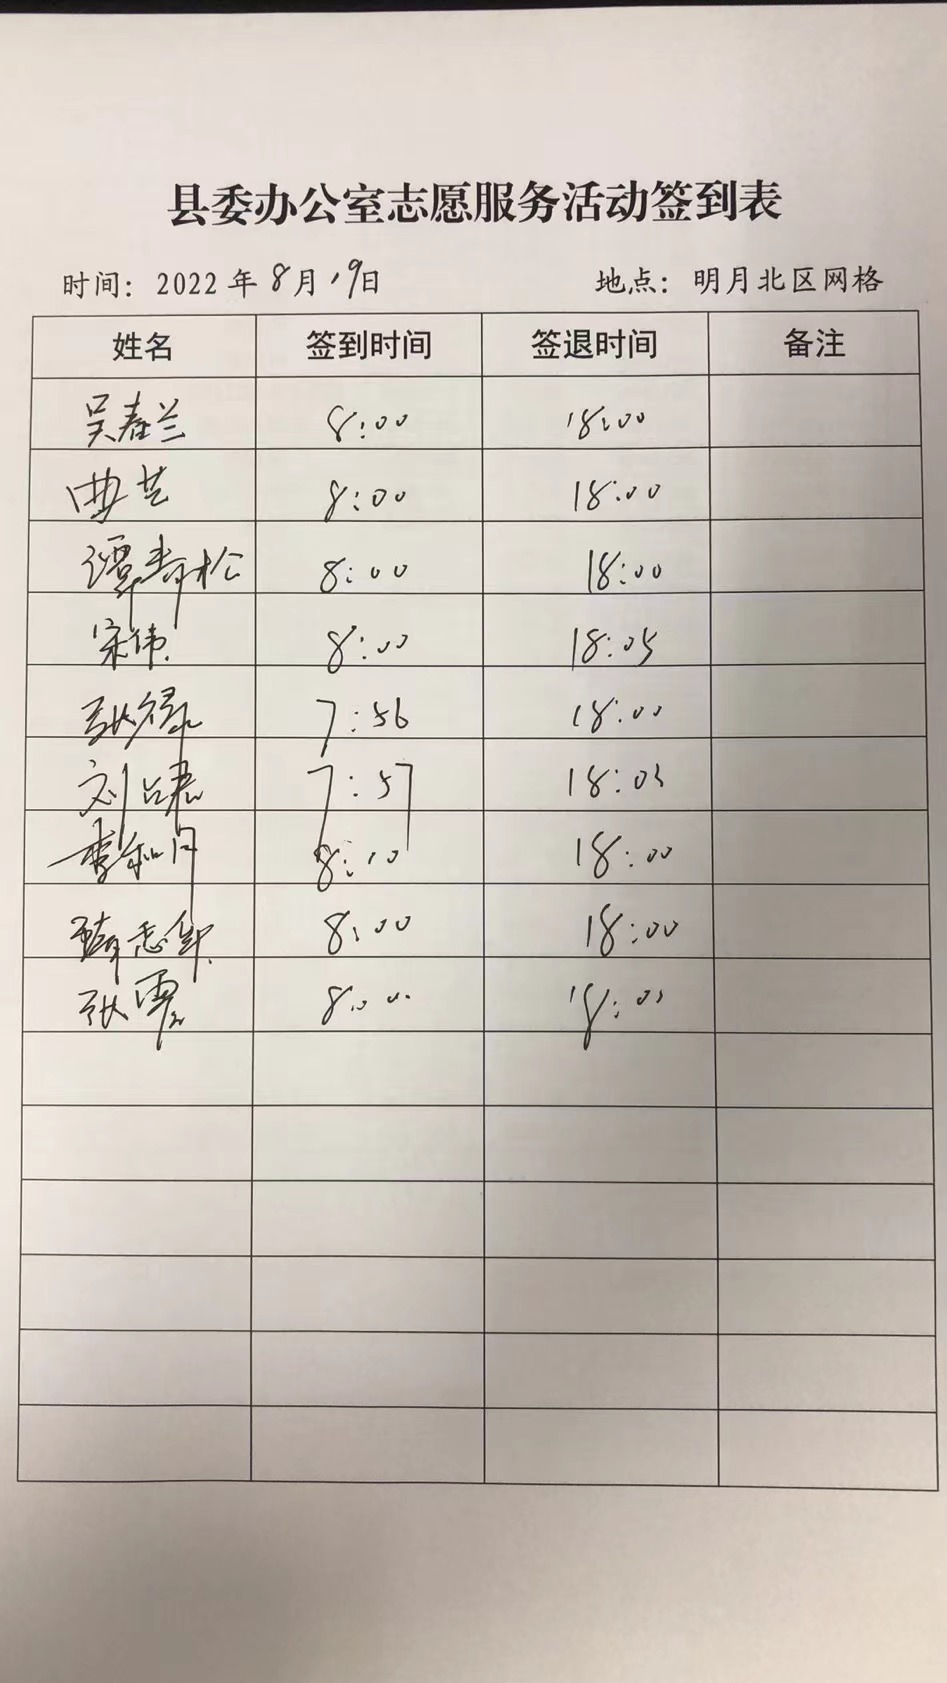 县委办公室志愿服务活动签到表
时间：2022年8月19日 地点：明月北区网格
姓名 签到时间 签退时间 备注
吴春兰 8:00 18:00
曲艺 8:00 18:00
谭青松 8:00 18:00
宋伟 8:00 18:05
7:56 18:00
刘占君 7:57 18:03
李和月 8:10 18:00
8:00 18:00
张震 8:00